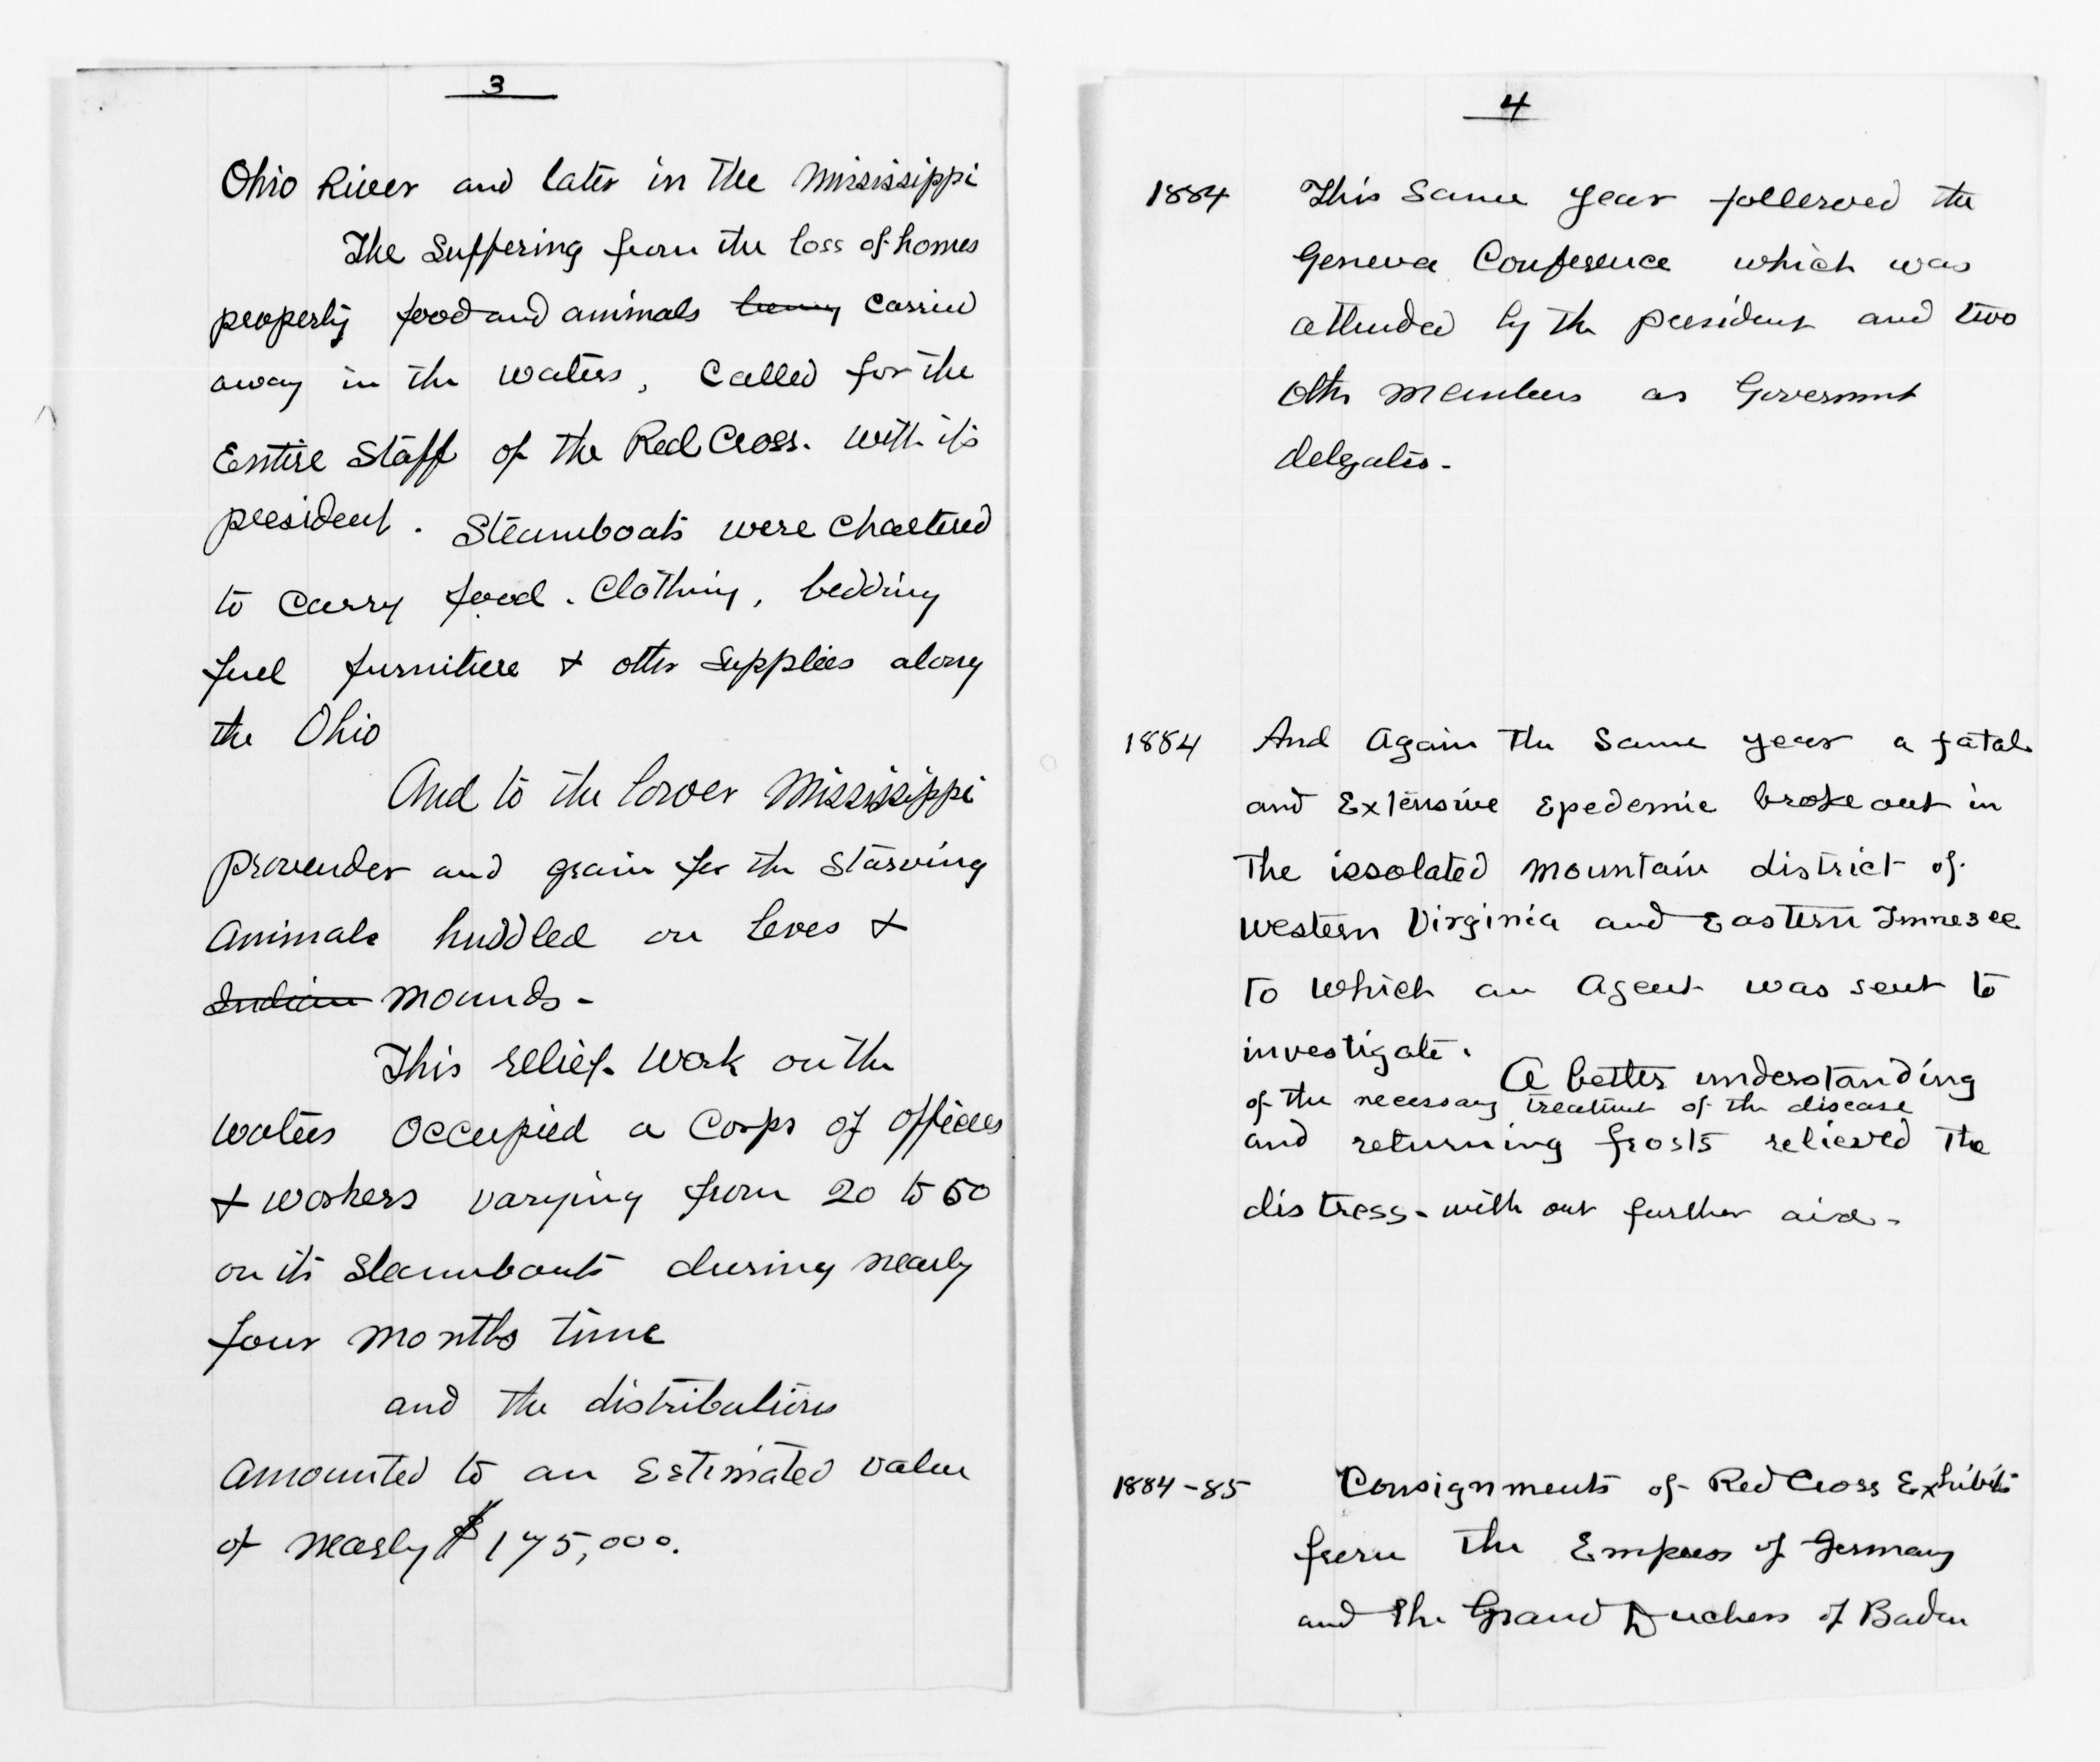 3
Ohio River and later in the Mississippi
The Suffering from the loss of homes
property food and animals being carried
away in the waters, called for the
Entire Staff of the Red Cross. with its
president. Steamboats were chartered
to carry food. Clothing, bedding
fuel furniture & other Supplies along
the Ohio
And to the lower Mississippi
provender and grain for the starving
Animals huddled on leves &
Indian mounds -
This relief work on the
waters occupied a Corps of officers
& workers varying from 20 to 50
on its steamboats during nearly
four months time
and the distributions
amounted to an Estimated value
of nearly $175,000.
4
1884 This same year followed the
Geneva Conference which was
attended by the president and two
other members as Government
delegates -
1884 And Again the same year a fatal
and Extensive Epedemic broke out in
The issolated mountain district of
western Virginia and Eastern Tennesee
to which an Agent was sent to
investigate.
A better understanding
of the necessary treatment of the disease
and returning frosts relieved the
distress - with out further aid -
1884-85 Consignments of Red Cross Exhibits
from the Empress of Germany
and the Grand Duchess of Baden